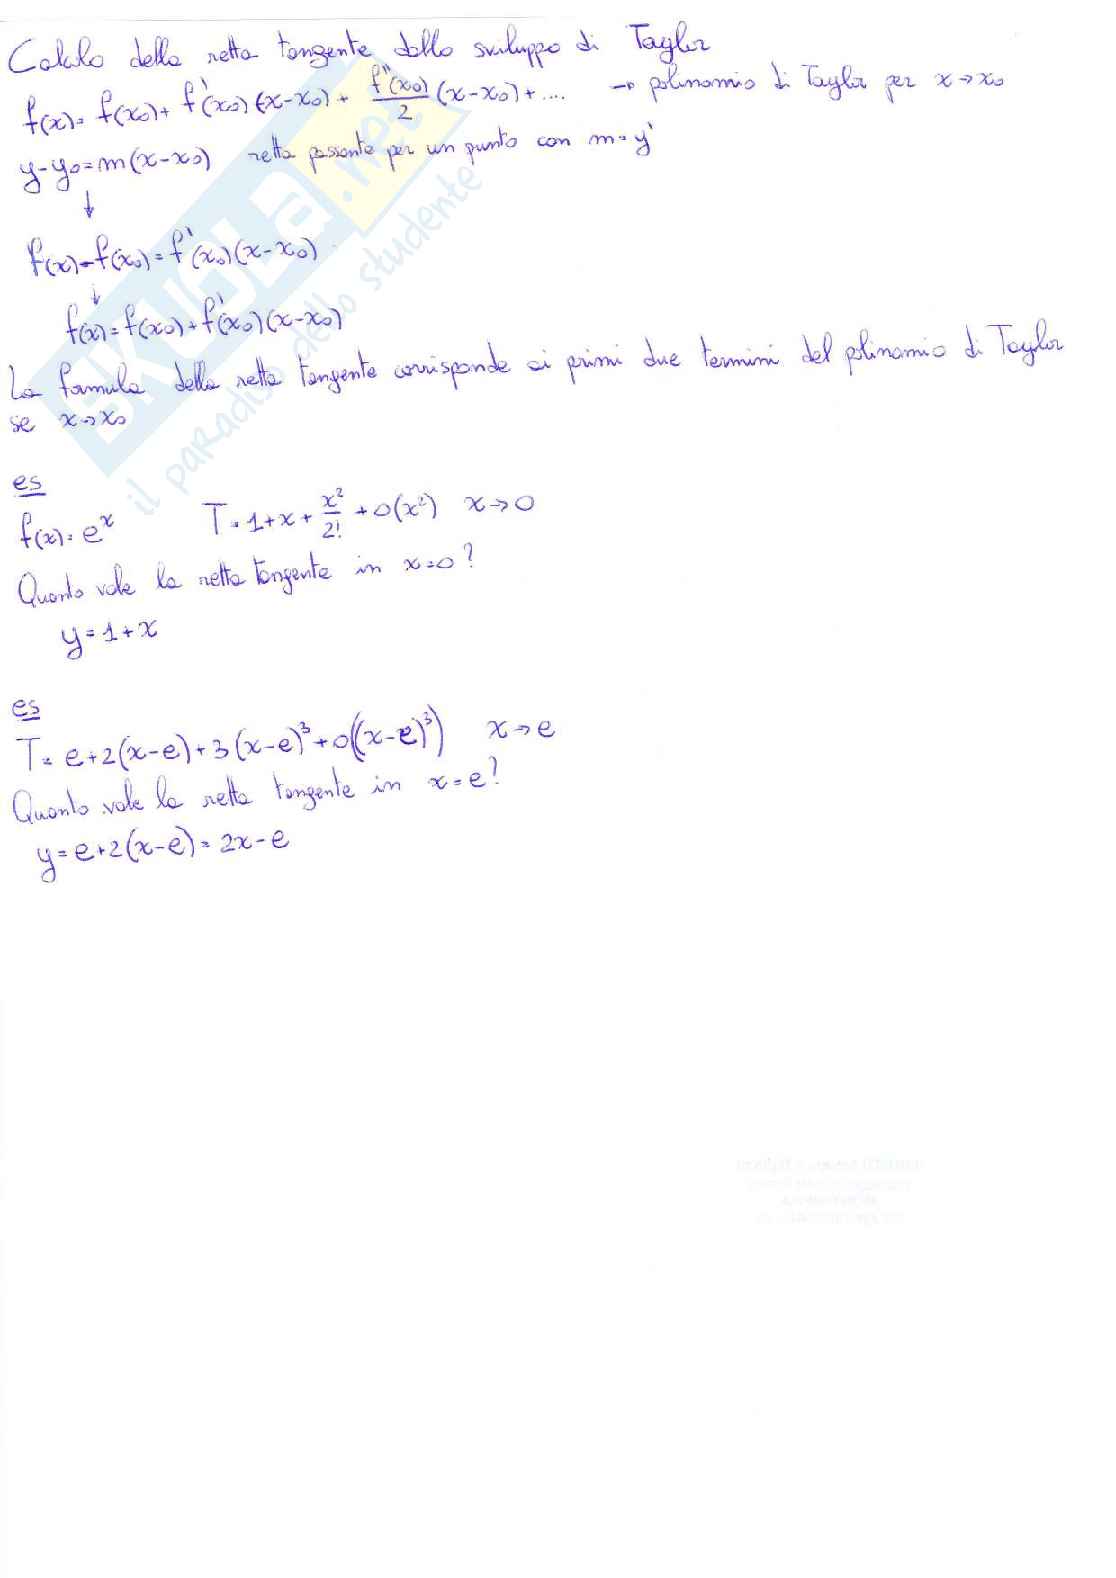 Calcolo della retta tangente dallo sviluppo di Taylor
f(x) = f(x₀) + f'(x₀)(x-x₀) + f''(x₀)/2 (x-x₀) + .... → polinomio di Taylor per x→x₀
y-y₀ = m(x-x₀) retta passante per un punto con m = y'
↓
f(x) - f(x₀) = f'(x₀)(x-x₀)
↓
f(x) = f(x₀) + f'(x₀)(x-x₀)
La formula della retta tangente corrisponde ai primi due termini del polinomio di Taylor
se x→x₀
es
f(x) = eˣ T = 1+x+x²/2! + o(x²) x→0
Quanto vale la retta tangente in x=0?
y = 1+x
es
T = e+2(x-e)+3(x-e)³+o((x-e)³) x→e
Quanto vale la retta tangente in x=e?
y = e+2(x-e) = 2x-e
SKUOLA.net
il paradiso dello studente